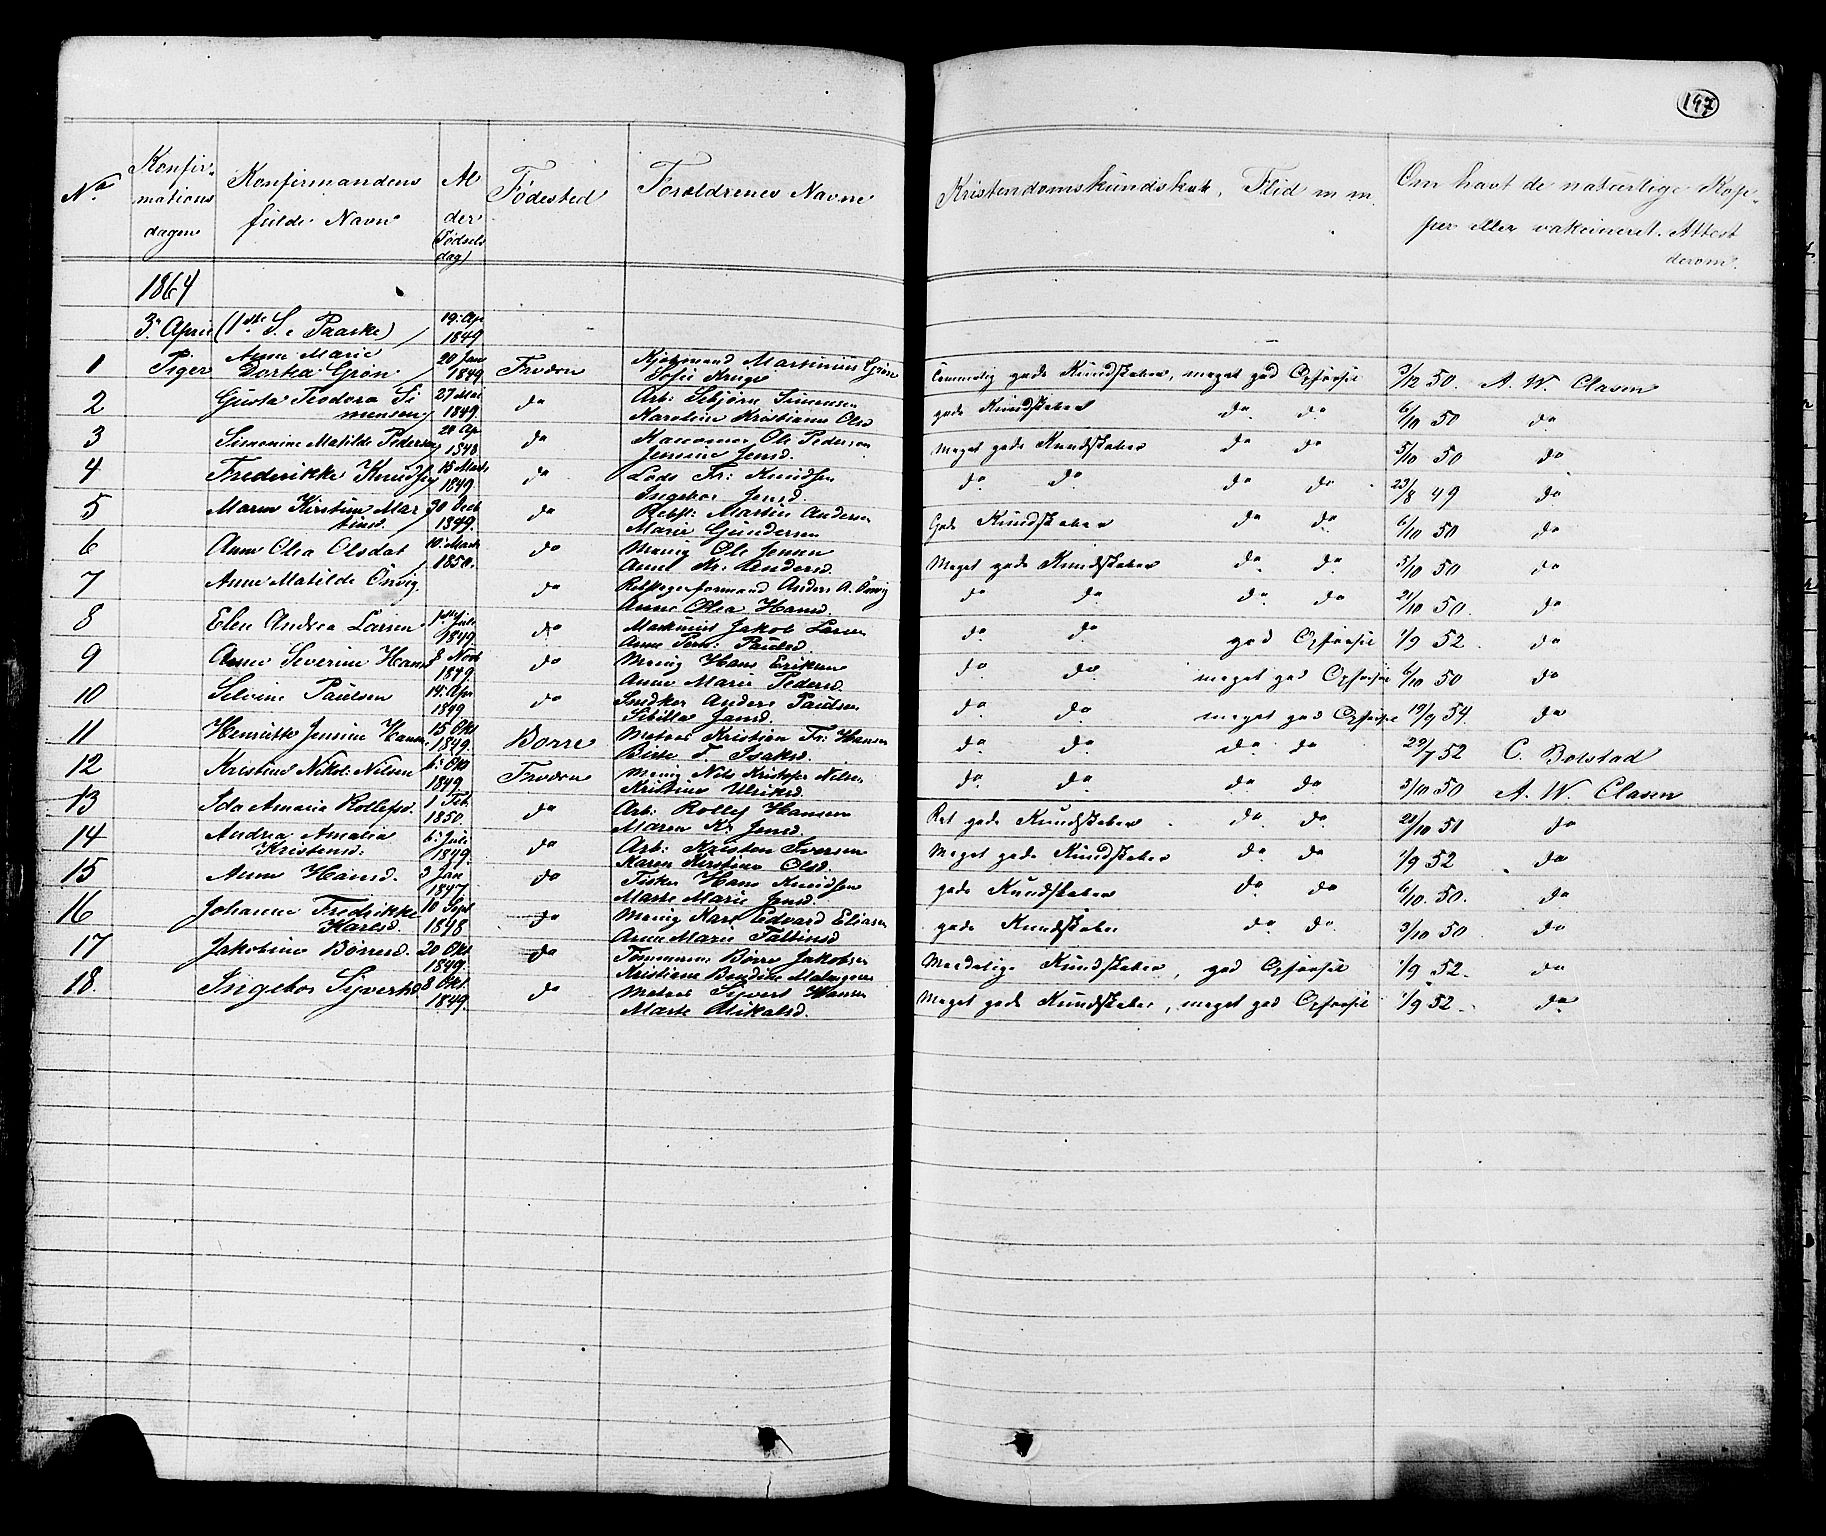 147
No. Konfirmationsdagen Konfirmandens fulde Navn Alder (Fødselsdag) Fødested Forældrenes Navne Kristendomskundskab, Flid m m. Om havt de naturlige Kopper eller vakcineret. Attest derom.
1864
3. April (1ste S. e Paaske) 19. Ap 1849
1 Piger Anne Marie Dortea Grøn 20 Jan 1849 Kjøbmand Martinius Grøn Sofie Temmelig gode Kundskaber, meget god Opførsel 3/12 50. A. W. Clasen
2 Gusta Teodora Simensen 27 Mai 1849. do Arb: Simensen Karoline Kristiane Ols gode Kundskaber do do 6/10 50 do
3 Simonine Matilde Pedersen 20 Ap 1848 do Ole Pedersen Jensine Jensd. Meget gode Kundskaber do do 5/10 50 do
4 Frederikke Knudsen 15 Marts 1849. do Lods Fr: Knudsen Ingebor Jensd. do do do do 23/8 49 do
5 Maren Kirstine Martinsd. 30 Decb 1849. do Rebsl: Martin Andersen Marie Gundersen Gode Kundskaber do do 6/10 50 do
6 Anne Olea Olsdat 10. Marts 1850. do Menig Ole Jensen Anne Kr. Andersd. Meget gode Kundskaber do do 5/10 50 do
7 Anne Matilde Önvig do Anders A. Önvig Anne Olea Hansd. do do do do 21/10 50. do
8 Elen Andrea Larsen 1ste Juli 1849. do Jakob Larsen Anne Petr: Paulsd. do do god Opførsel 1/9 52. do
9 Anne Severine Hans 8 Nov 1849. do Menig Hans Eriksen Anne Marie Pedersd. do do meget god Opførsel 6/10 50 do
10 Selvine Paulsen 14. Apr 1849 do Snedker Anders Paulsen Sibilla Jansd. do do meget god Opførsel 19/9 54. do
11 Henriette Jensine Hansen 15 Okt 1849. Borre Matros Kristian Fr: Hansen Birte T. Isaksd. do do do do 29/7 52 C. Bolstad
12 Kristine Nikol: Nilsen 6. Okt 1849 Menig Nils Kristofer Nilsen Kristine Ulriksd. do do do do 3/10 50 A. W. Clasen
13 Ida Amarie Rollefsd. 1 Feb. 1850. do Arb: Rollef Hansen Maren Kr Jensd. Ret gode Kundskaber do do 21/10 51 do
14 Andrea Amalia Kristensd. 6. Juli 1849. do Arb: Kristen Iversen Karen Kirstine Olsd. Meget gode Kundskaber do do 1/9 52 do
15 Anne Hansd. 3 Jan 1847. do Fisker Hans Knudsen Marte Marie Jensd. gode Kundskaber do do 6/10 50. do
16 Johanne Fredrikke Karlsd. 10 Sept 1848 do Menig Karl Edvard Eliasen Anne Marie gode Kundskaber do do 3/10 50 do
17 Jakobine Börresd. 20 Okt 1849. do Tömmerm: Börre Jakobsen Kristiane Bendine Maadelige Kundskaber, god Opførsel 1/9 52. do
18. Ingebor Syvertsd 8 Okt. 1849. do Matros Syvert Hansen Marte Mikalsd. Meget gode Kundskaber, meget god Opførsel 1/9 52. do